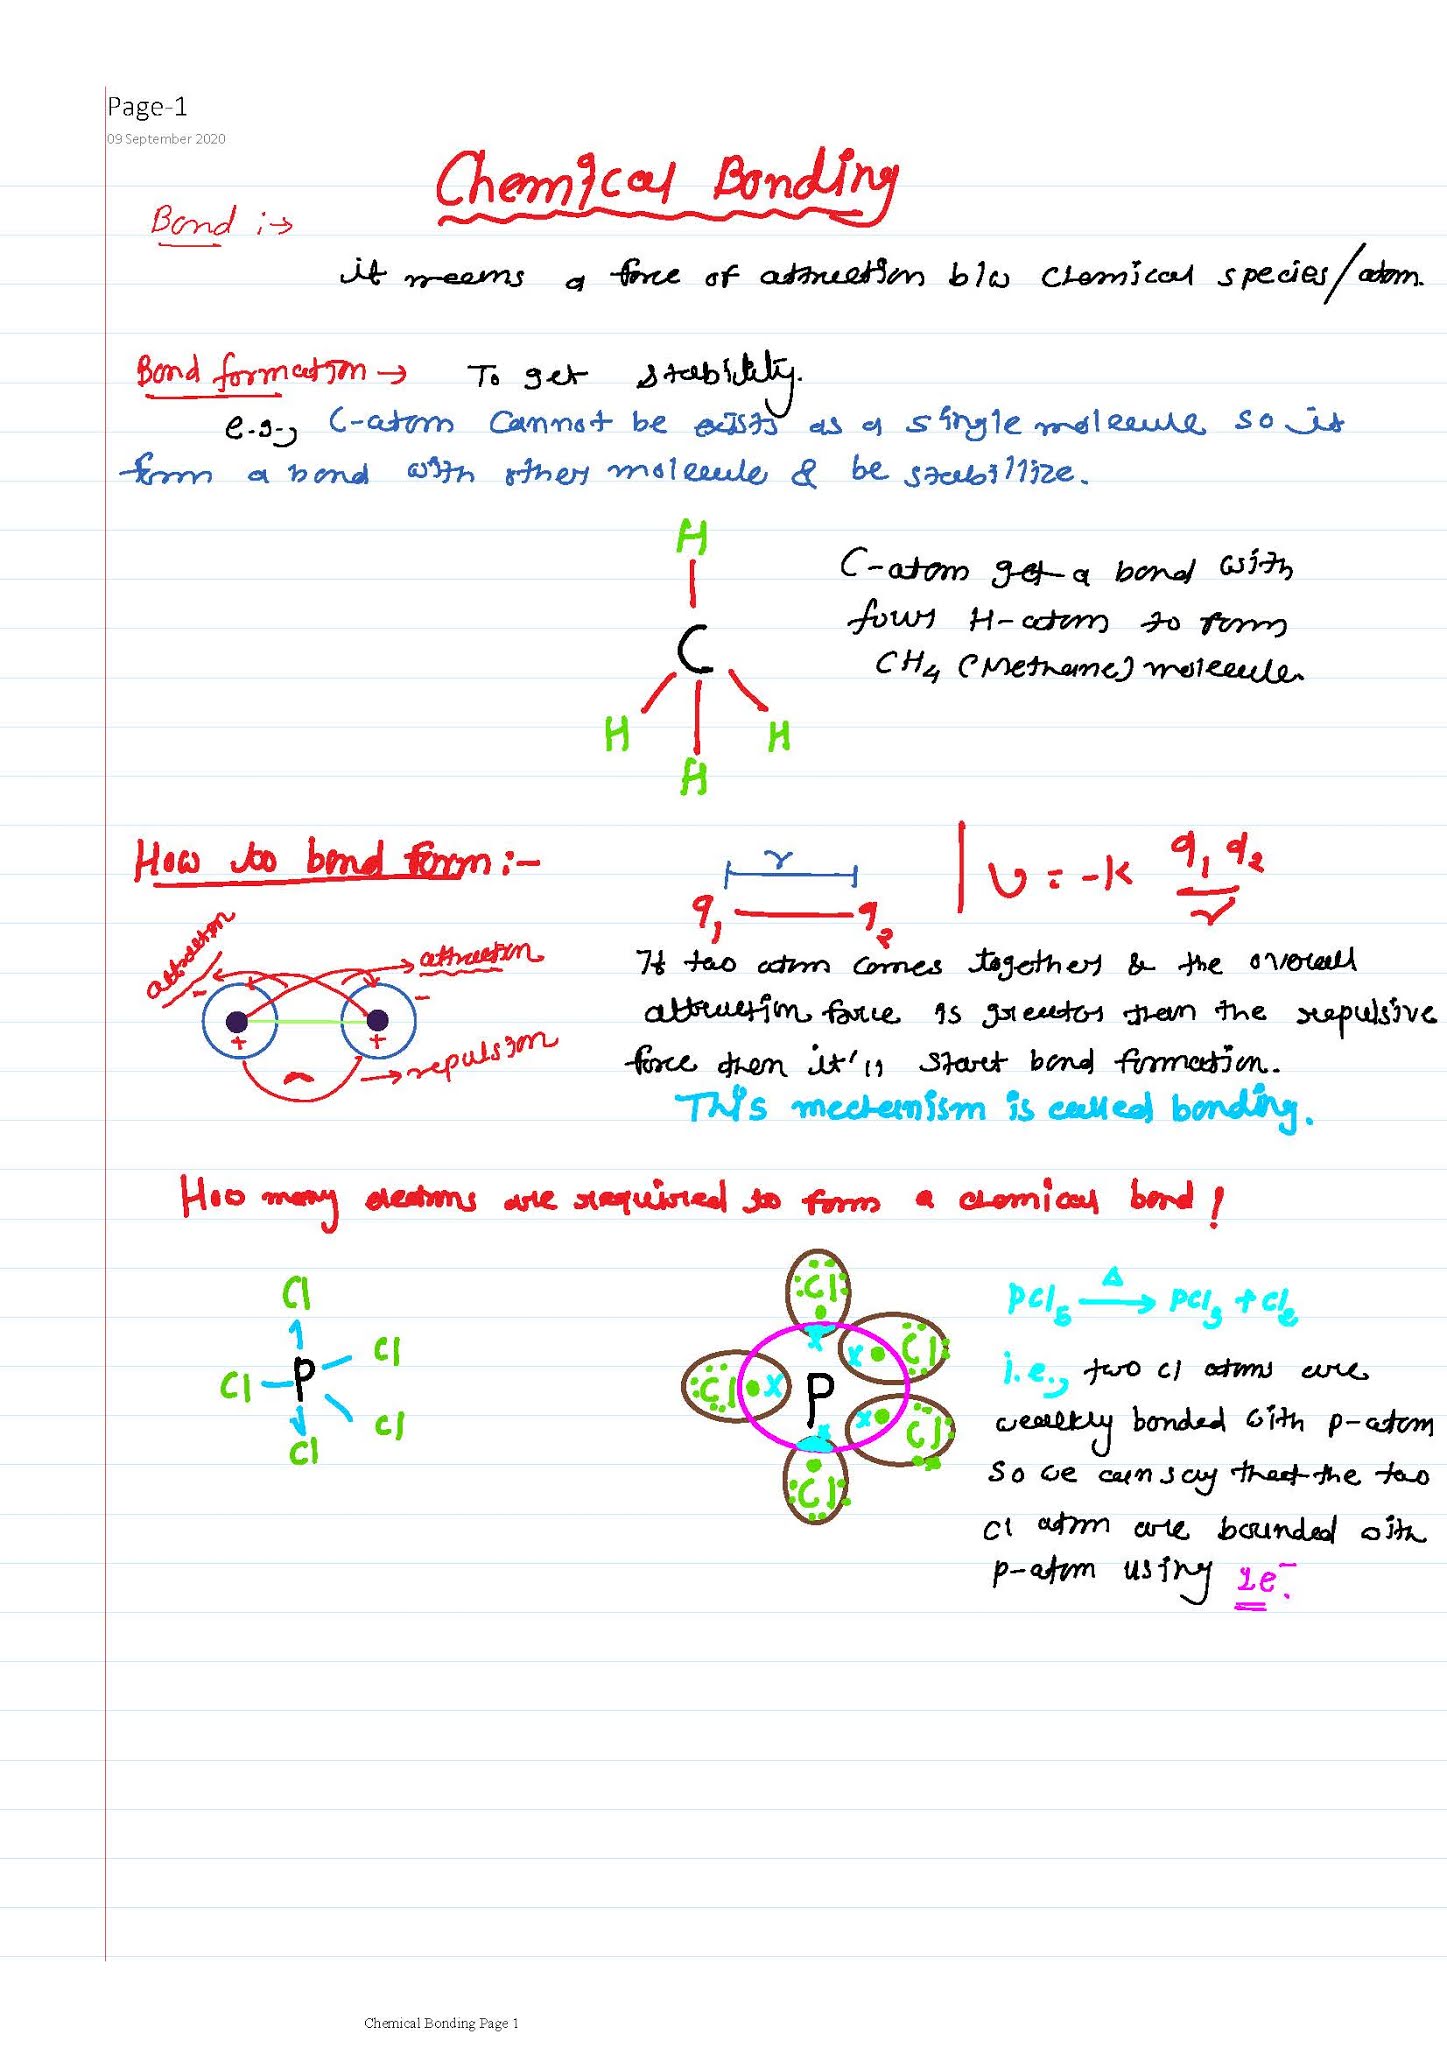 Page-1
09 September 2020
Chemical Bonding
Bond :→
it means a force of attraction b/w chemical species/atom.
Bond formation → To get stability.
e.g., C-atom cannot be exists as a single molecule so it
form a bond with other molecule & be stabillize.
H
C
H H
H
C-atom get a bond with
four H-atom to form
CH4 (Methane) molecule.
How to bond form :-
r
q1 q2
U = -k q1 q2
r
attraction
attraction
- -
+ +
repulsion
If two atom comes together & the overall
attraction force is greator than the repulsive
force then it'll start bond formation.
This mechanism is called bonding.
How many electrons are required to form a chemical bond!
Cl
Cl
Cl P
Cl
Cl
Cl
x
x Cl
Cl x P
x Cl
x
Cl
PCl5 Δ→ PCl3 + Cl2
i.e., two Cl atoms are
weakly bonded with P-atom
So we can say that the two
Cl atom are bounded with
P-atom using 1e⁻.
Chemical Bonding Page 1